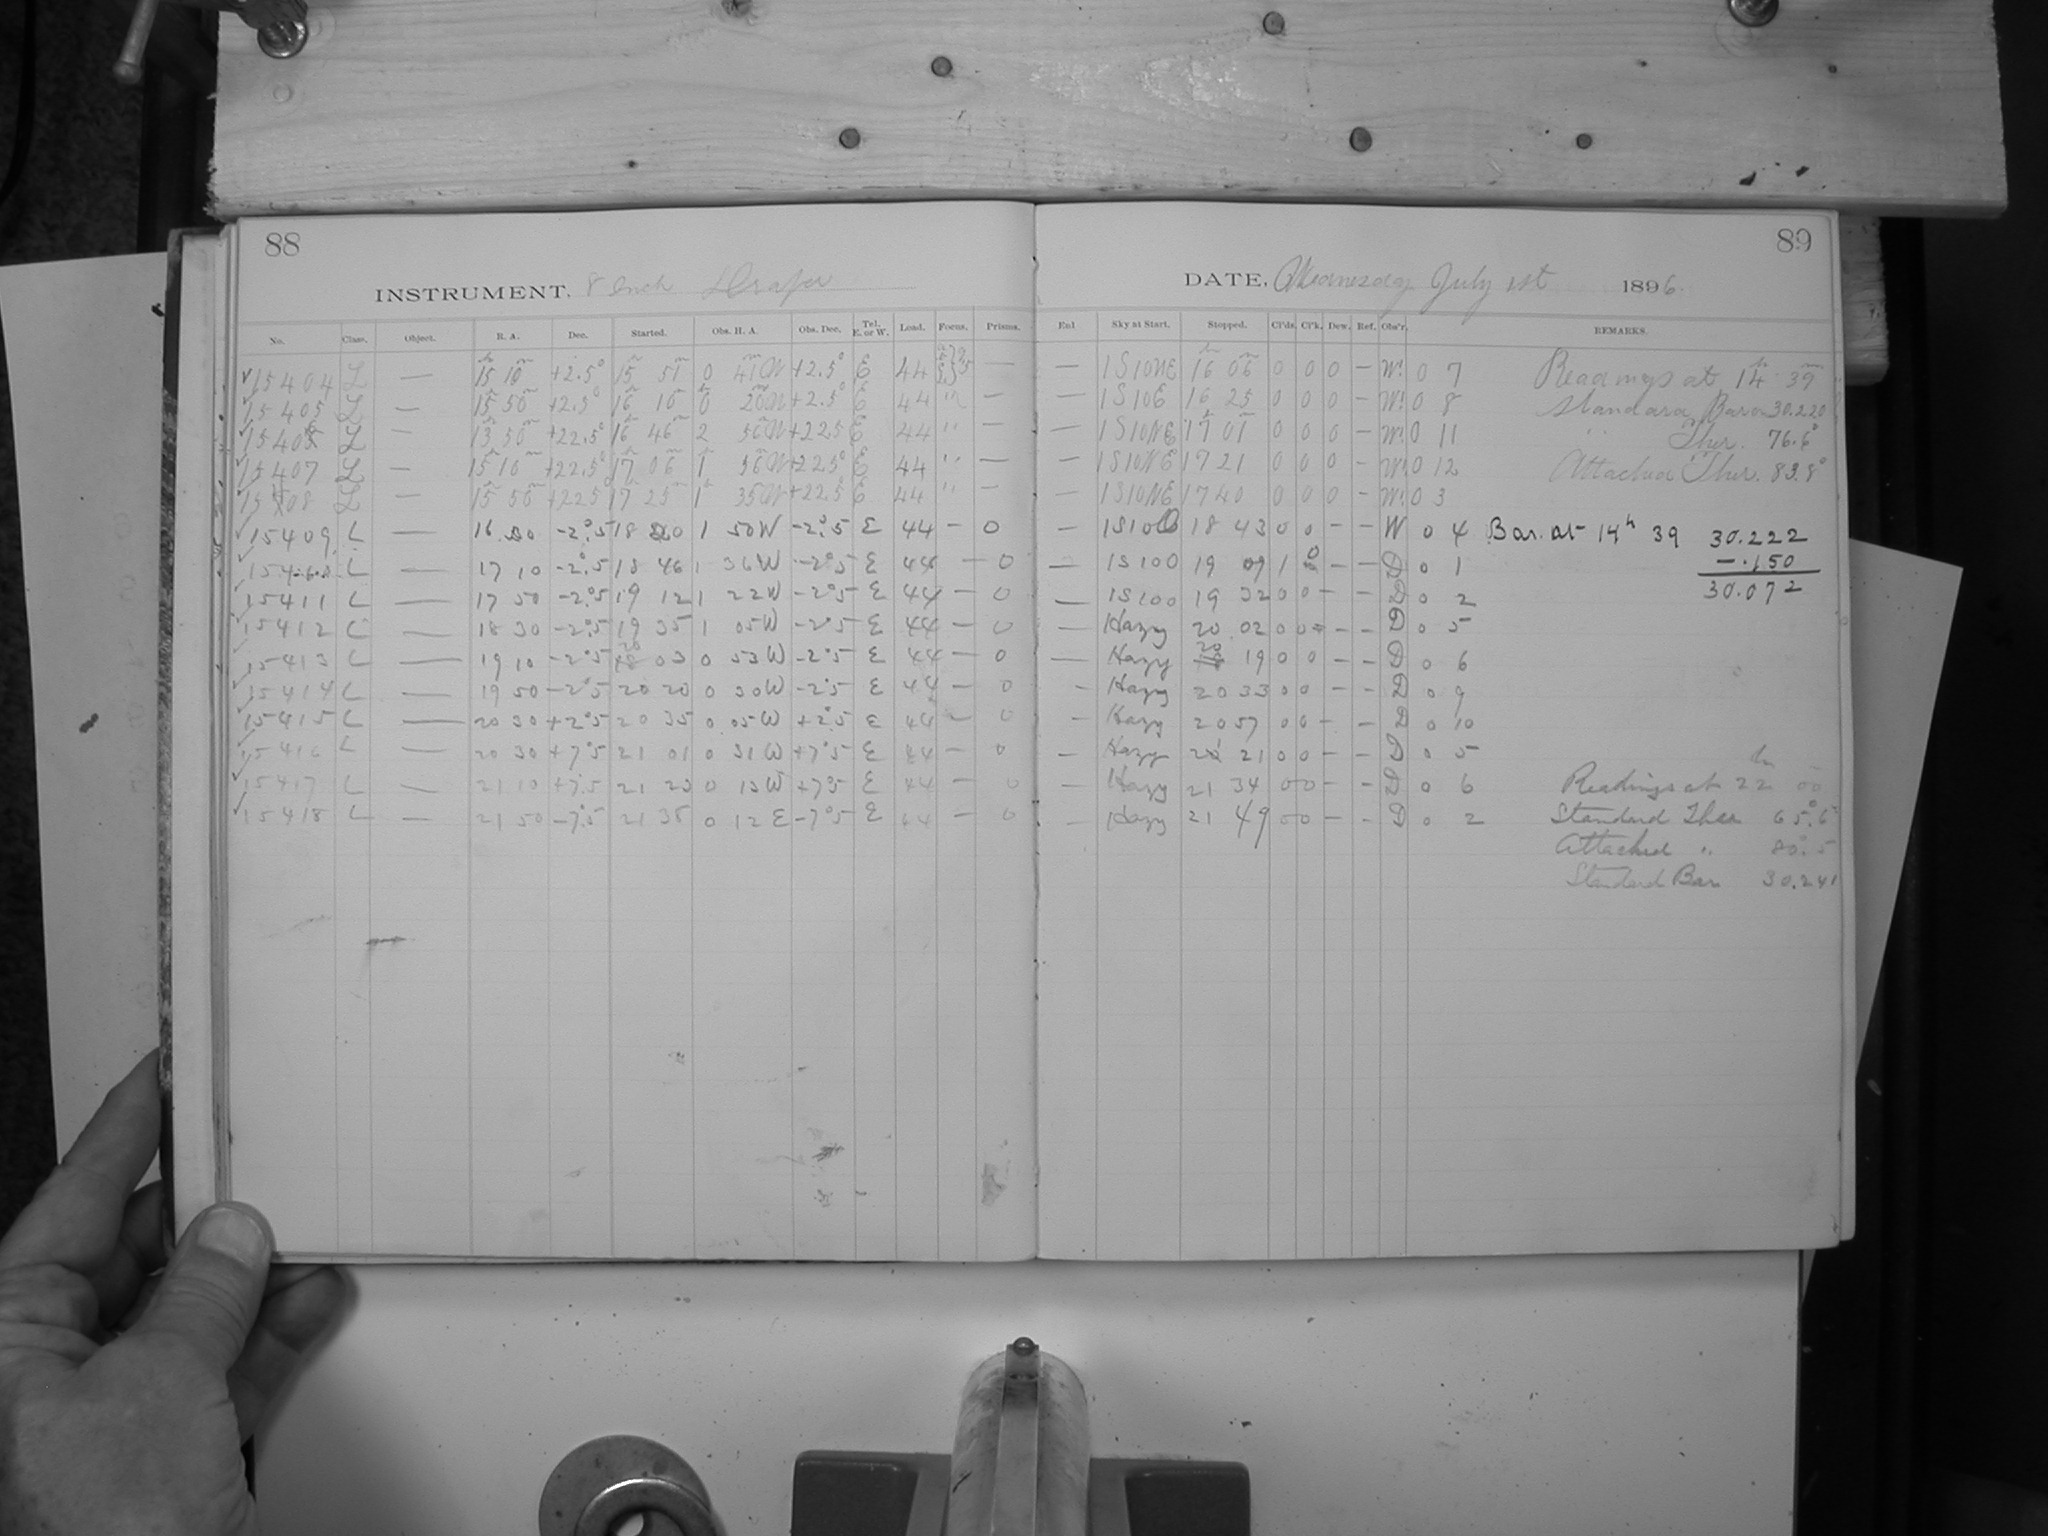 88
89
INSTRUMENT, 8 Inch Draper
DATE, Wednesday July 1st 1896.
No. Class. Object. R. A. Dec. Started. Obs. H. A. Obs. Dec. Tel. E. or W. Load. Focus. Prisms. Enl Sky at Start. Stopped. Cl'ds. Cl'k. Dew. Ref. Obs'r. REMARKS.
✓15404 L — 15h 10m +2.5° 15h 51m 0 41m W +2.5° E 44 — — 1S10NE 16h 06m 0 0 0 – W. 0 7 Readings at 14h 39m
✓15405 L — 15h 50m +2.5° 16h 10m 0h 20m W +2.5° E 44 " — — 1S10E 16 25 0 0 0 – W. 0 8 Standard Barom 30.220
✓15406 L — 13h 50m +22.5° 16h 46m 2 56m W +22.5 E 44 " — — 1S10NE 17h 01m 0 0 0 – W. 0 11 " Ther. 76.6°
✓15407 L — 15h 10m +22.5° 17h 06m 1h 56m W +22.5° E 44 " — — 1S10NE 17 21 0 0 0 – W. 0 12 Attached Ther. 83.8°
✓15408 L — 15h 50m +22.5 17h 25m 1h 35m W +22.5° E 44 " — — 1S10NE 17 40 0 0 0 – W. 0 3
✓15409 L — 16 30 –2°.5 18 20 1 50W –2°.5 E 44 – 0 — 1S100 18 43 0 0 – – W 0 4 Bar. at 14h 39 30.222
✓15410 L — 17 10 –2°.5 18 46 1 36W –2°5 E 44 – 0 — 1S100 19 09 1 0 – – D 0 1 –.150
✓15411 L — 17 50 –2°5 19 12 1 22W –2°5 E 44 – 0 — 1S100 19 32 0 0 – – D 0 2 30.072
✓15412 L — 18 30 –2°5 19 35 1 05W –2°5 E 44 – 0 — Hazy 20 02 0 0 – – D 0 5
✓15413 L — 19 10 –2°5 20 03 0 53W –2°5 E 44 – 0 — Hazy 20 19 0 0 – – D 0 6
✓15414 L — 19 50 –2°5 20 20 0 30W –2°5 E 44 – 0 – Hazy 20 33 0 0 – – D 0 9
✓15415 L — 20 30 +2°5 20 35 0 05W +2°5 E 44 – 0 – Hazy 20 57 0 0 – – D 0 10
✓15416 L — 20 30 +7°5 21 01 0 31W +7°5 E 44 – 0 – Hazy 21 21 0 0 – – D 0 5
✓15417 L — 21 10 +7°5 21 23 0 13W +7°5 E 44 – 0 – Hazy 21 34 0 0 – – D 0 6 Readings at 22h 00
✓15418 L — 21 50 –7°5 21 38 0 12 E –7°5 E 44 – 0 – Hazy 21 49 0 0 – – D 0 2 Standard Ther 65.6°
Attached " 80°.5
Standard Bar. 30.241